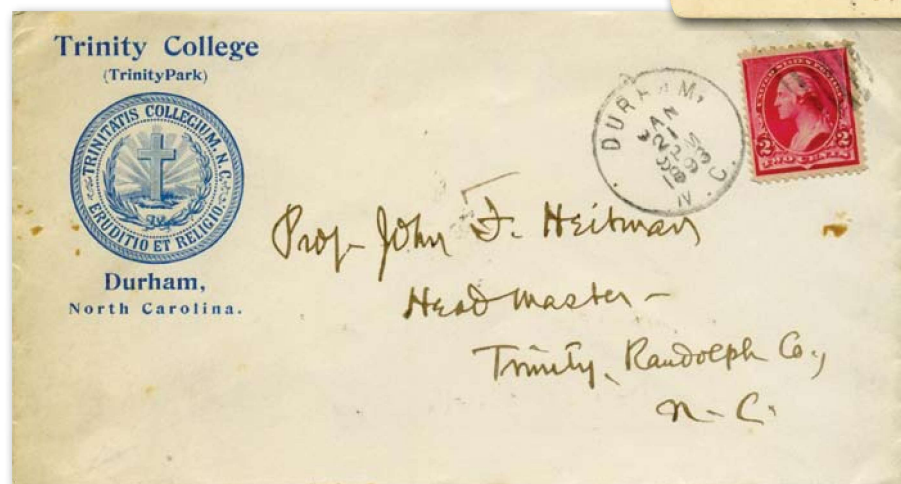 Trinity College
(TrinityPark)
TRINITATIS COLLEGIUM, N.C.
ERUDITIO ET RELIGIO
Durham,
North Carolina.
DURHAM,
JAN
21
N.C.
UNITED STATES POSTAGE
2 2
TWO CENTS
Prof. John F. Heitman
Headmaster-
Trinity, Randolph Co.,
N. C.